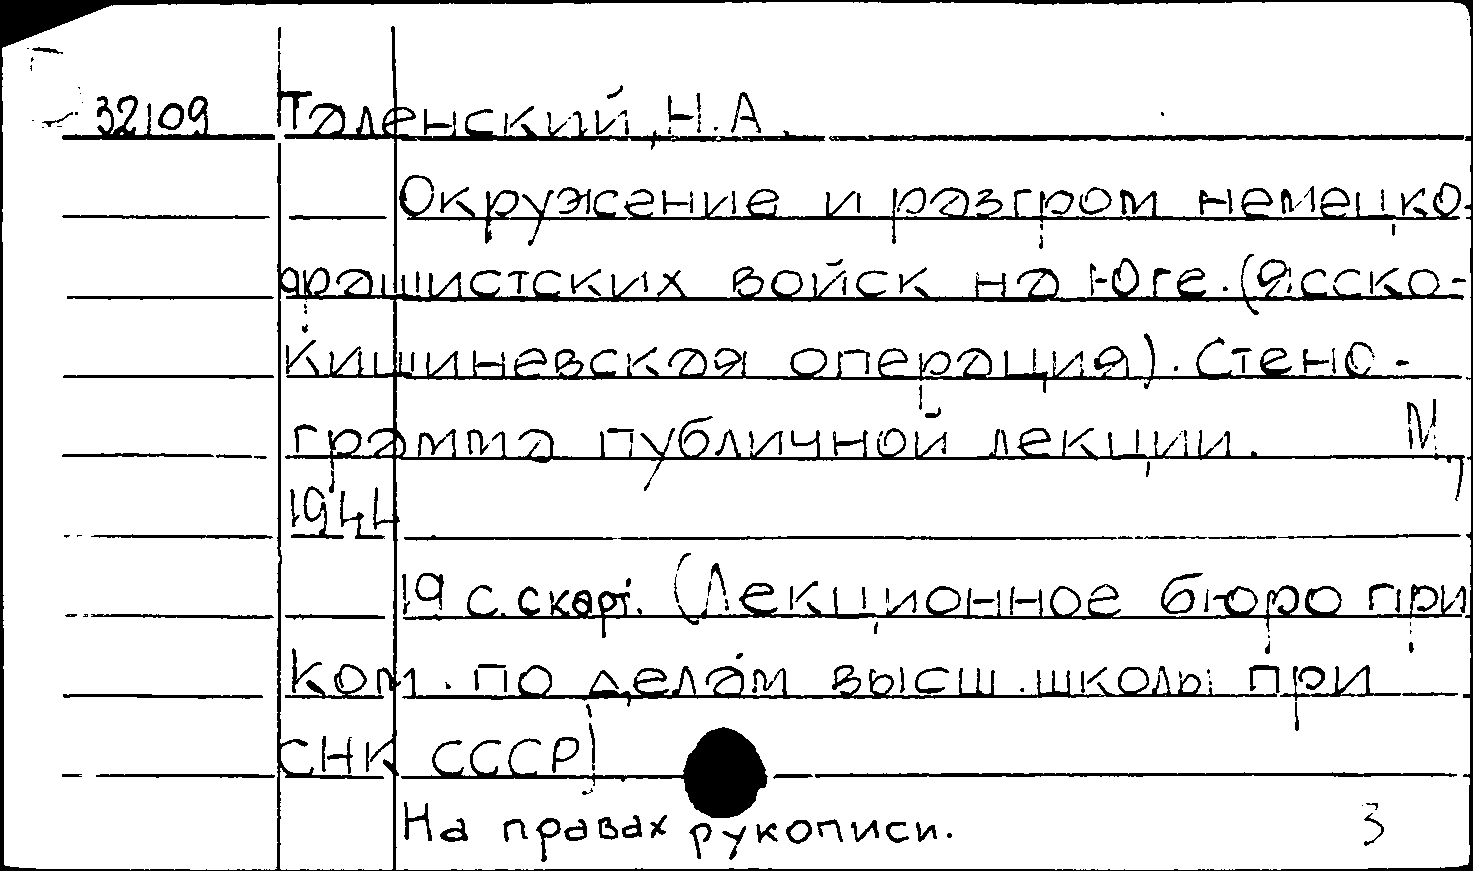 32109 Таленский, Н.А.
Окружение и разгром немецко-
фашистских войск на Юге. (Ясско-
Кишиневская операция). Стено-
грамма публичной лекции. М.,
1944
19 с. с карт. (Лекционное бюро при
Ком. по делам высш. школы при
СНК СССР)
На правах рукописи. 3